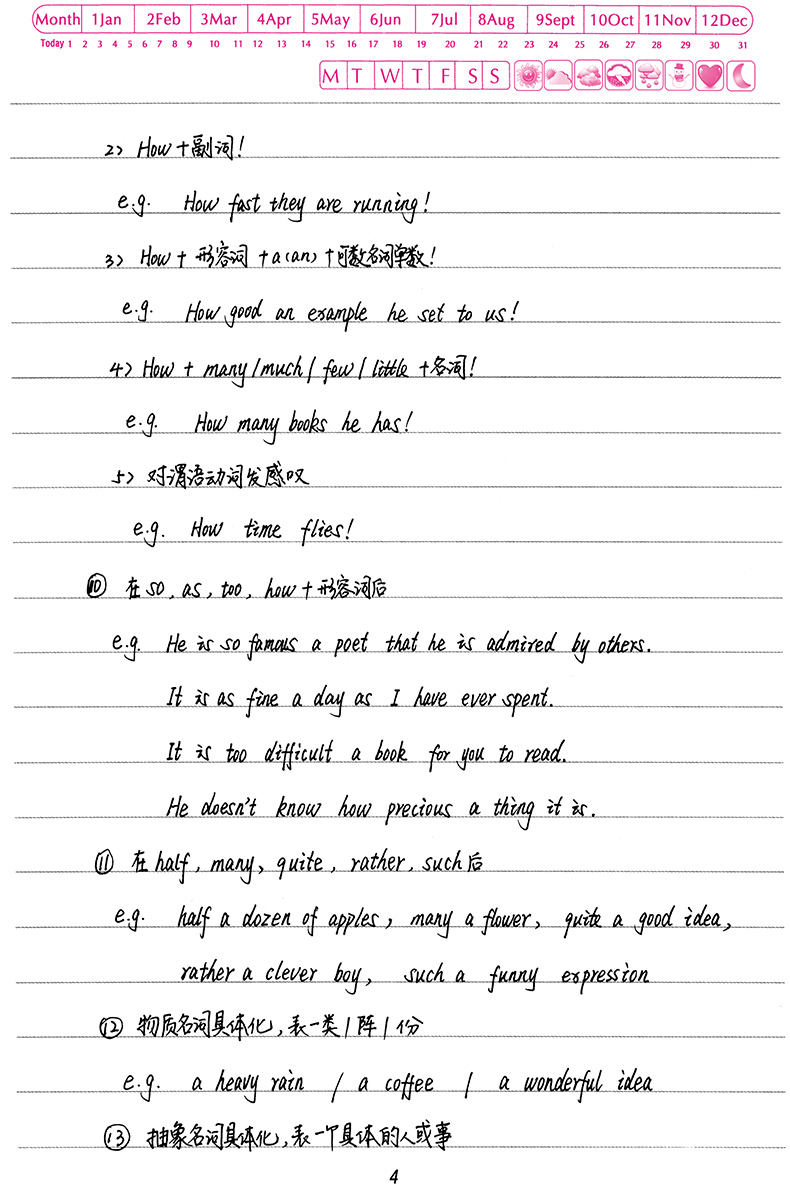 Month 1Jan 2Feb 3Mar 4Apr 5May 6Jun 7Jul 8Aug 9Sept 10Oct 11Nov 12Dec
Today 1 2 3 4 5 6 7 8 9 10 11 12 13 14 15 16 17 18 19 20 21 22 23 24 25 26 27 28 29 30 31
M T W T F S S
2) How+副词!
e.g. How fast they are running!
3) How + 形容词 +a(an)+可数名词单数!
e.g. How good an example he set to us!
4) How + many/much/few/little +名词!
e.g. How many books he has!
5) 对谓语动词发感叹
e.g. How time flies!
⑩ 在so, as, too, how+形容词后
e.g. He is so famous a poet that he is admired by others.
It is as fine a day as I have ever spent.
It is too difficult a book for you to read.
He doesn't know how precious a thing it is.
⑪ 在half, many, quite, rather, such后
e.g. half a dozen of apples, many a flower, quite a good idea,
rather a clever boy, such a funny expression
⑫ 物质名词具体化,表一类/阵/份
e.g. a heavy rain / a coffee / a wonderful idea
⑬ 抽象名词具体化,表一个具体的人或事
4